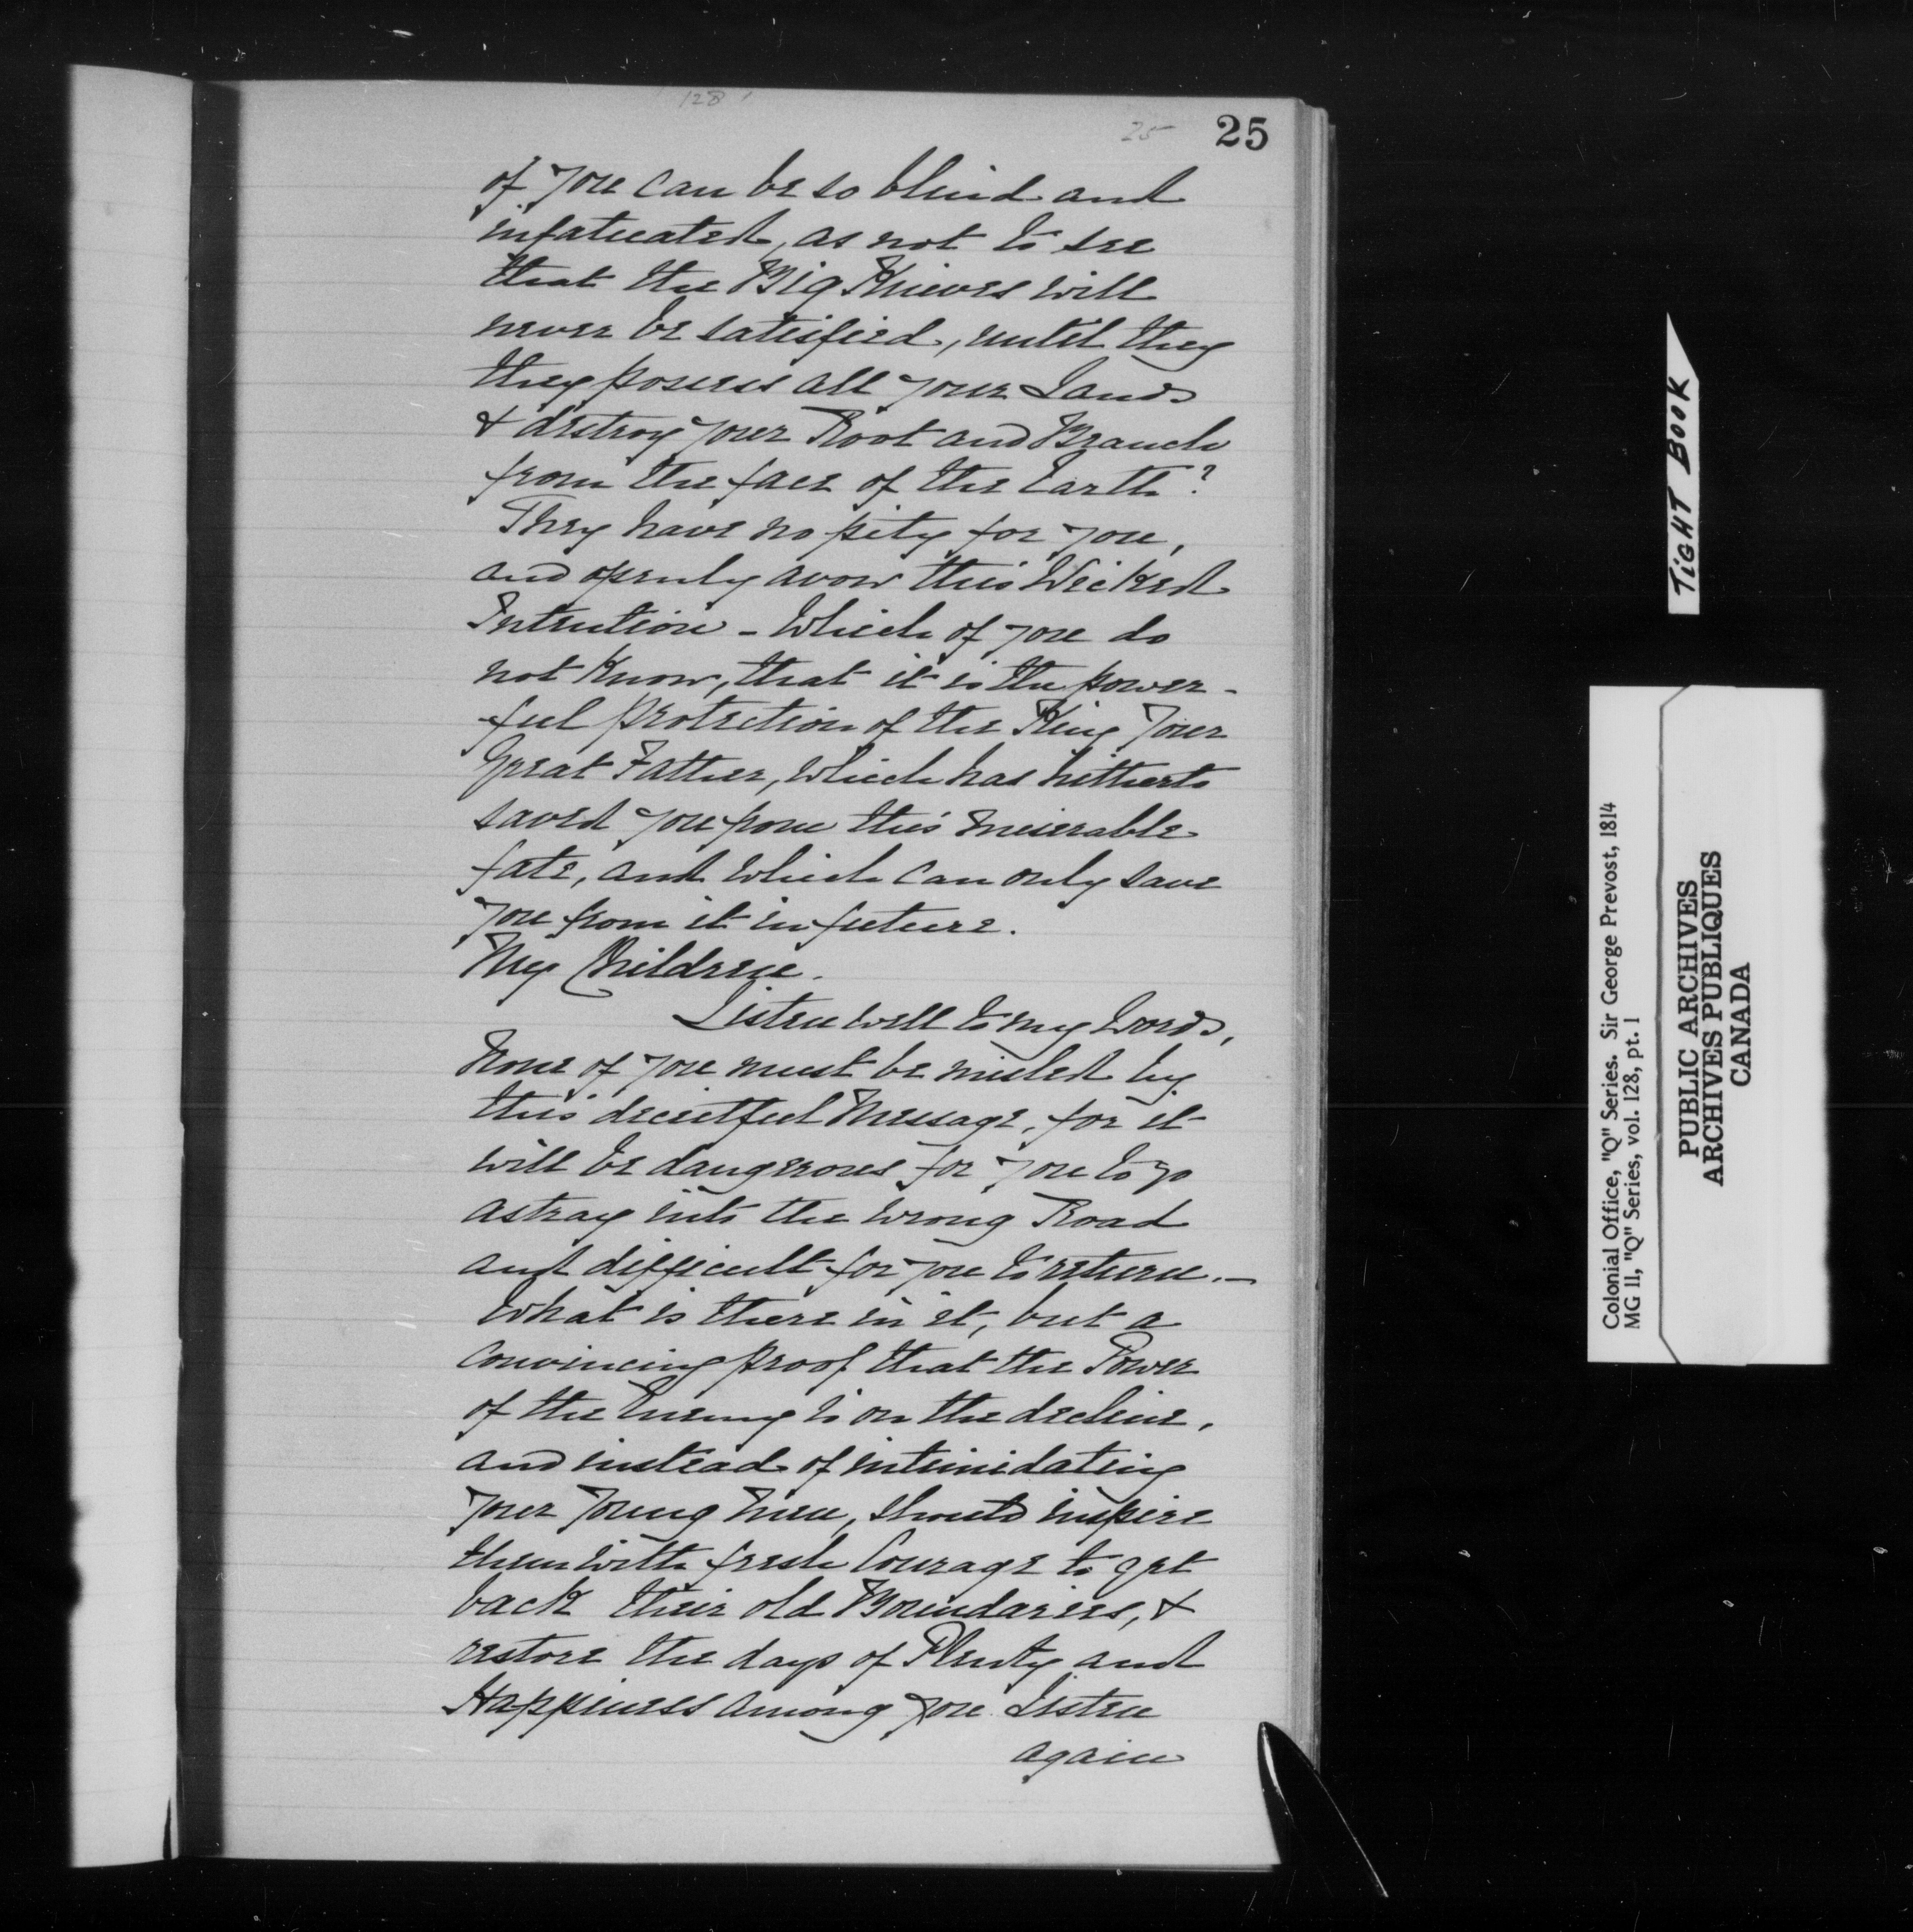 128
25 25
of you can be so blind and
infatuated, as not to see
that the Big Knives will
never be satisfied, until they
they possess all your Lands
& destroy your Root and Branch
from the face of the Earth?
They have no pity for you,
and openly avow this Wicked
Intention - Which of you do
not know, that it is the power-
ful protection of the King Your
Great Father, which has hitherto
saved you from this miserable
fate, and which can only save
you from it in future.
My Children.
Listen well to my Words,
None of you must be misled by
this deceitful Message, for it
will be dangerous for you to go
astray into the wrong Road
and difficult for you to return. -
What is there in it, but a
convincing proof that the Power
of the Enemy is on the decline,
and instead of intimidating
your Young Men, should inspire
them with fresh Courage to get
back their old Boundaries, &
restore the days of Plenty and
Happiness among you Listen
again
TIGHT BOOK
Colonial Office, "Q" Series. Sir George Prevost, 1814
MG 11, "Q" Series, vol. 128, pt. 1
PUBLIC ARCHIVES
ARCHIVES PUBLIQUES
CANADA